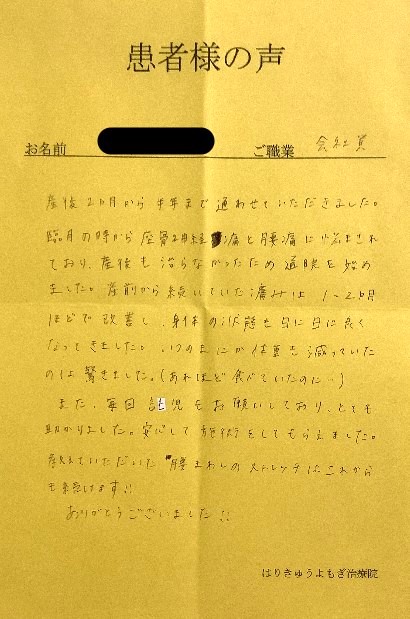 患者様の声
お名前 ご職業 会社員
産後2カ月から半年まで通わせていただきました。
臨月の時から座骨神経痛と腰痛に悩まされ
ており、産後も治らなかったため通院を始め
ました。産前から続いていた痛みは1~2カ月
ほどで改善し、身体の状態も日に日に良く
なってきました。いつのまにか体重も減っていた
のは驚きました。(あれほど食べていたのに…)
また、毎回託児もお願いしており、とても
助かりました。安心して施術をしてもらえました。
教えていただいた腰まわしのストレッチはこれから
も続けます!!
ありがとうございました!!
はりきゅうよもぎ治療院